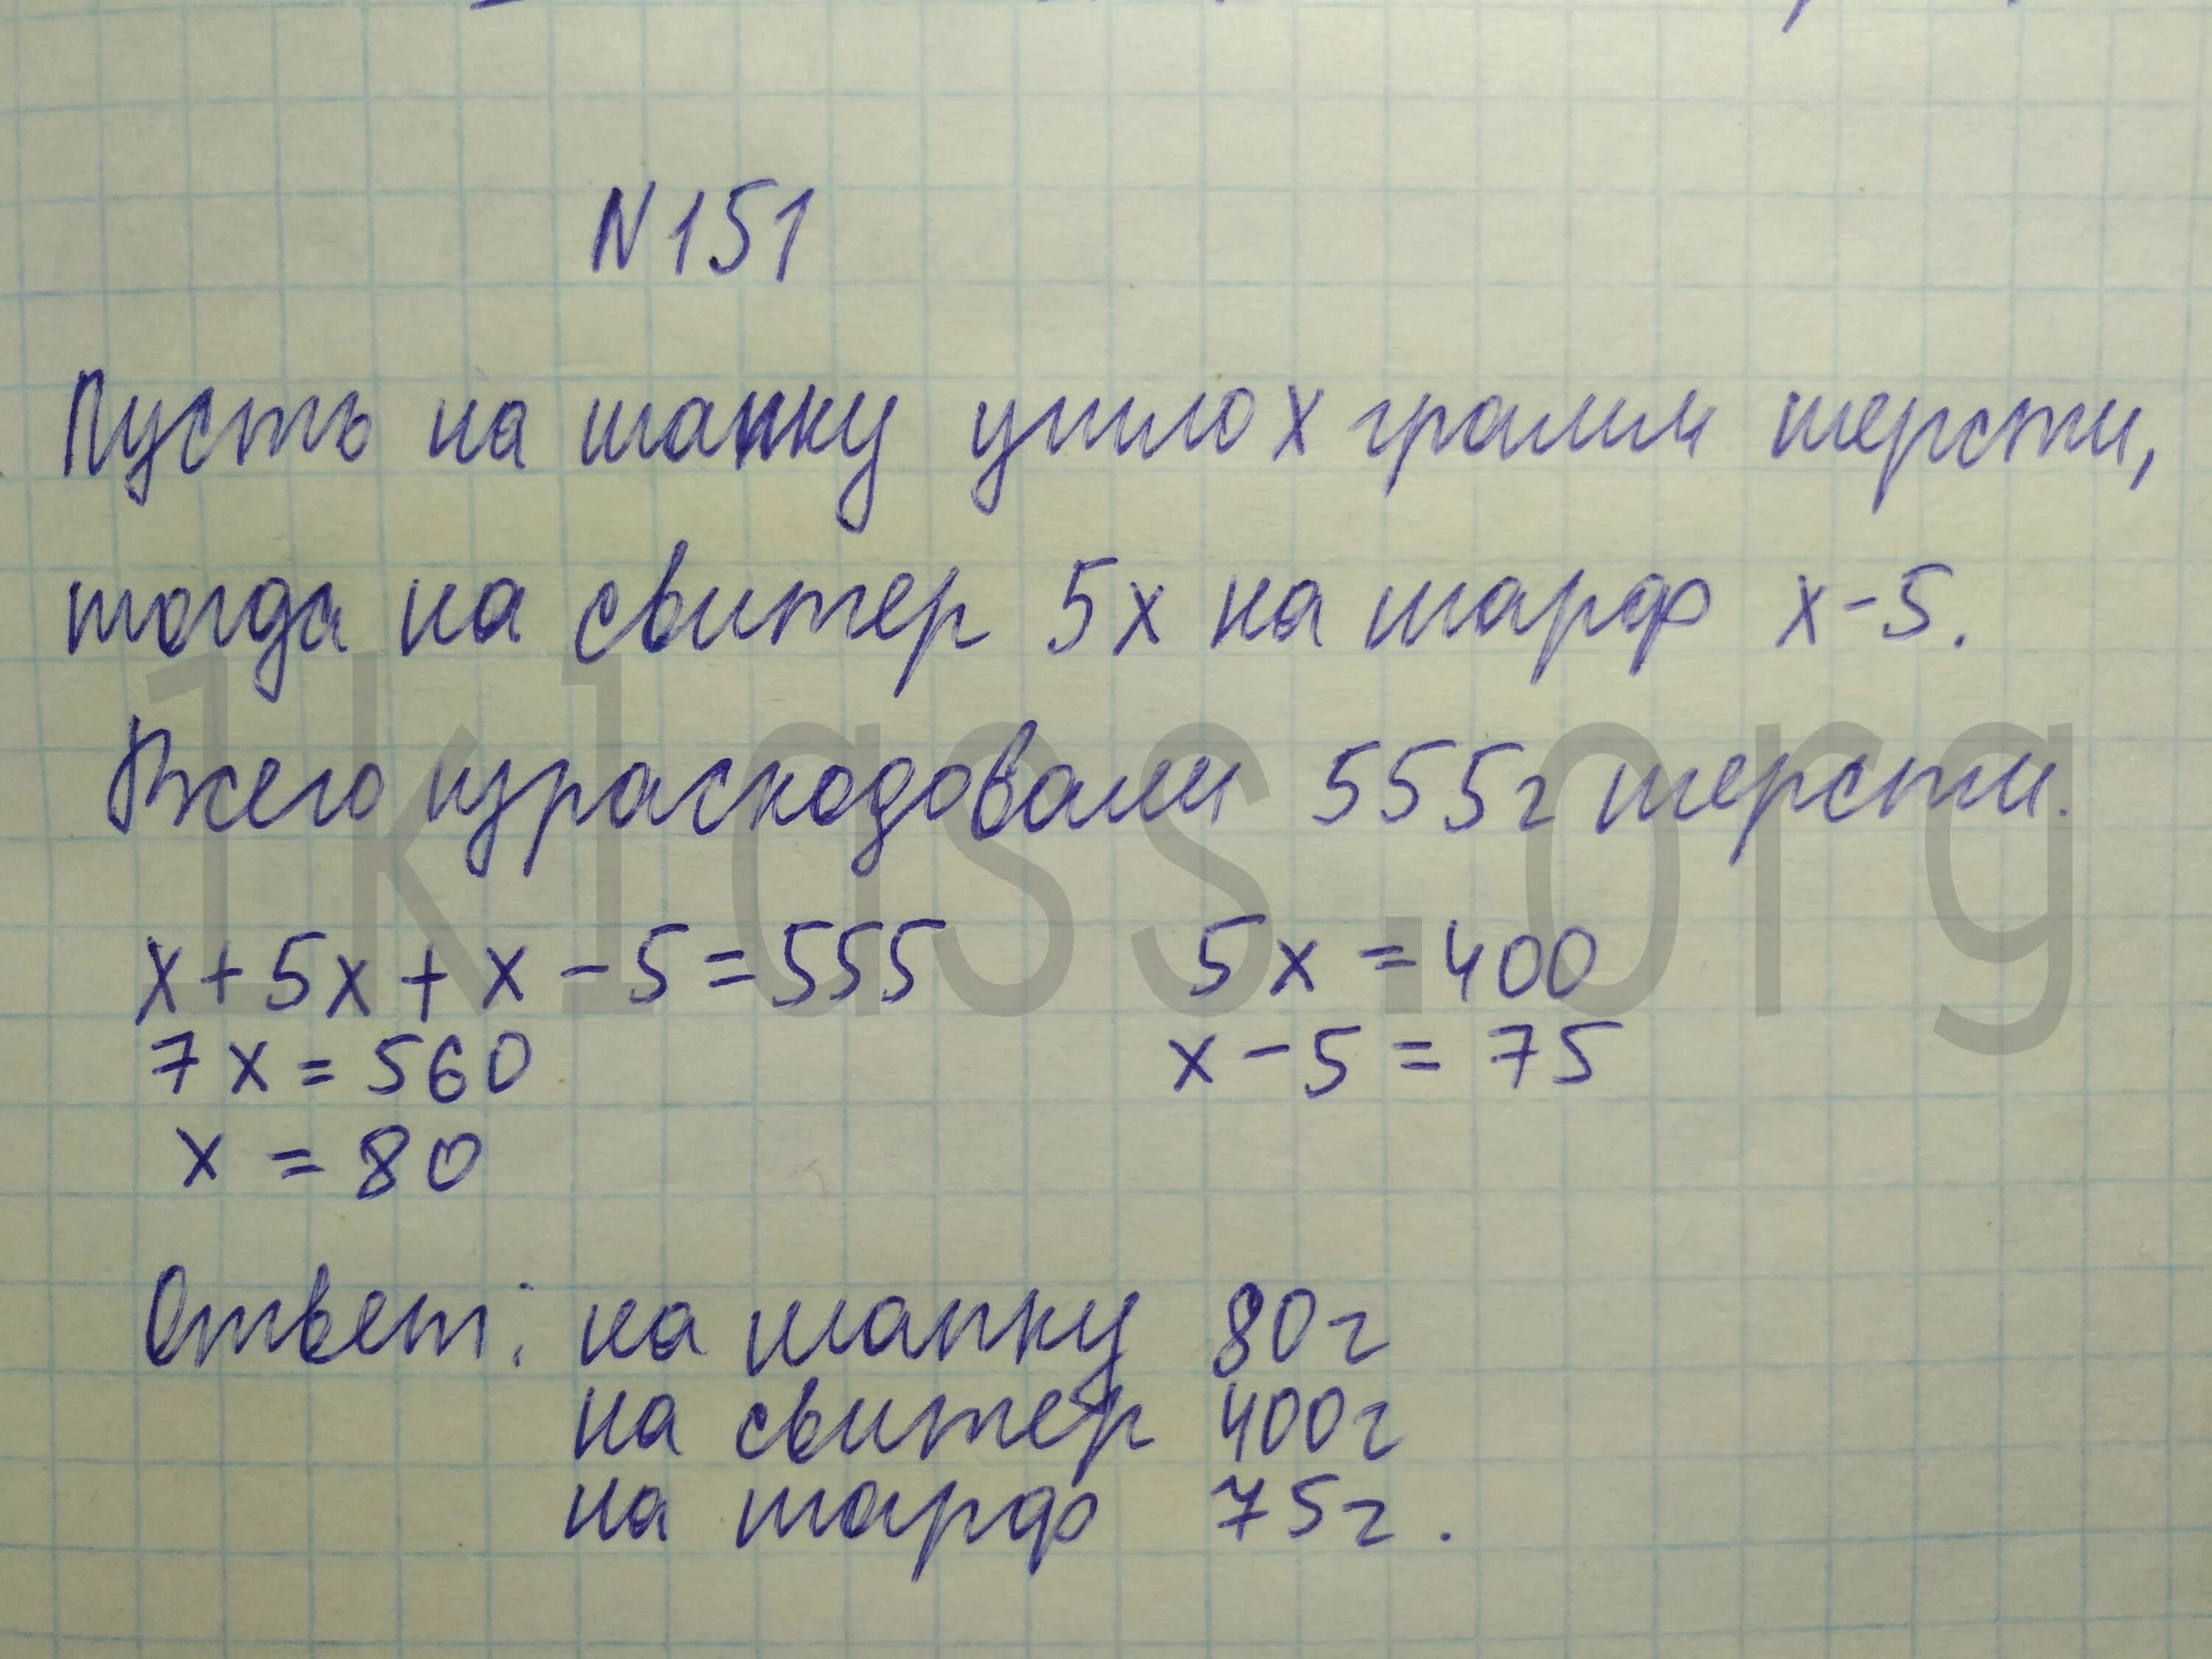 N151
Пусть на шапку ушло x грамм шерсти,
тогда на свитер 5x на шарф x-5.
Всего израсходовали 555г шерсти.
x+5x+x-5=555 5x=400
7x=560 x-5=75
x=80
Ответ: на шапку 80г
на свитер 400г
на шарф 75г.
1klass.org